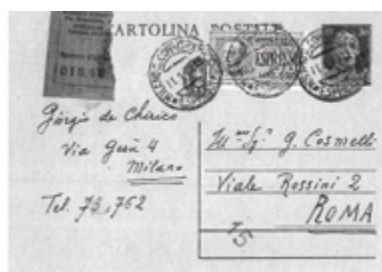 CARTOLINA POSTALE
ESPRESSO
Giorgio de Chirico
Via Gesù 4
Milano
Tel. 73,762
Ill mo Sig. G. Cosmelli
Viale Rossini 2
ROMA
15